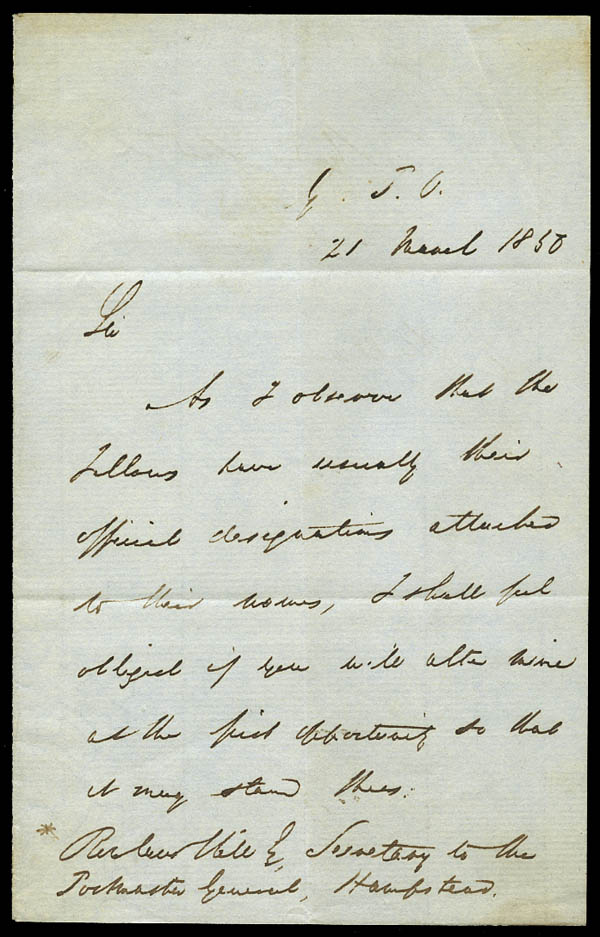 G. P. O.
21 March 1850
Sir
As I observe that the
Fellows have usually their
official designations attached
to their names, I shall feel
obliged if you will alter mine
at the first opportunity so that
it may stand thus:
* Rowland Hill Esq, Secretary to the
Postmaster General, Hampstead.